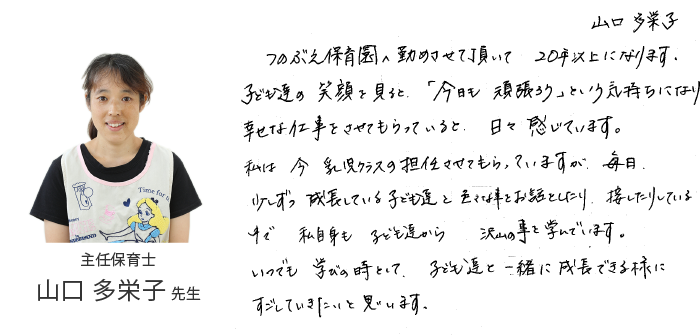 山口 多栄子
つのぶえ保育園へ勤めさせて頂いて 20年以上になります。
子ども達の 笑顔を見ると、「今日も 頑張ろう」という気持ちになり
幸せな仕事をさせてもらっていると、日々 感じています。
私は 今 乳児クラスの担任させてもらっていますが、毎日、
少しずつ 成長している子ども達と 色々な事をお話したり、接したりしている
中で 私自身も 子ども達から 沢山の事を学んでいます。
いつでも 学びの時として、子ども達と 一緒に成長できる様に
すごしていきたいと思います。
Time for
主任保育士
山口 多栄子 先生